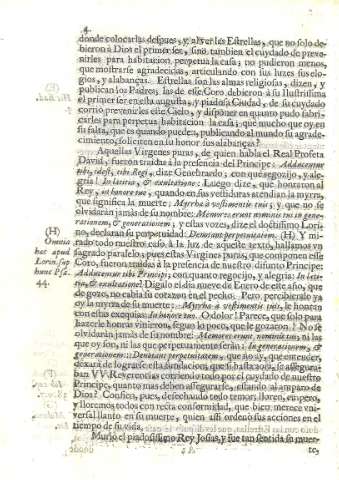 4
donde colocarlas despues, y, al ver las Estrellas, que no solo de-
bieron à Dios el primer ser, sino tambien el cuydado de preve-
nirles para habitacion perpetua la casa; no pudieron menos,
que mostrarse agradecidas, articulando con sus luzes sus elo-
gios, y alabanças. Estrellas son las almas religiosas, dizen, y
publican los Padres, las de esse Coro debieron à su Ilustrissima
el primer ser en esta augusta, y piadosa Ciudad, de su cuydado
corriò prevenirles este Cielo, y disponer en quanto pudo fabri-
carles para perpetua habitacion la casa; que mucho que oy en
su falta, que es quando pueden, publicando al mundo su agrade-
cimiento, soliciten en su honor sus alabanças?
Aquellas Virgenes puras, de quien habla el Real Profeta
David, fueron traidas à la presencia del Principe: Adducentur
tibi, idest, tibi Regi, dize Genebrardo, con què regozijo, y ale-
gria! In lætitia, & exultatione: Luego dize, que honraron al
Rey, in honore tuo, quando en sus vestiduras atendian la myrra,
que significa la muerte: Myrrha à vestimentis tuis; y que no se
olvidaràn jamàs de su nombre: Memores erunt nominis tui in gene-
ratione, & generationem; y estas vozes, dize el doctissimo Lori-
no, declaran su perpetuidad: Denotant perpetuitatem. (H) Y mi-
(H)
Omnia
hæc apud
Lorin. sup
hunc Psa.
44.
rado todo nuestro caso à la luz de aqueste texto, hallamos vn
sagrado paralelo; pues estas Virgines puras, que componen esse
Coro, fueron traidas à la presencia de nuestro difunto Principe:
Adducentur tibi Principi; con quanto regozijo, y alegria: In læti-
tia, & exultatione! Digalo el dia nueve de Enero de este año, que
de gozo, no cabia el coraçon en el pecho. Pero, percibieronle ya
oy la myrra de su muerte: Myrrha à vestimentis tuis, le honran
con estas exequias: In honore tuo. O dolor! Parece, que solo para
hazerle honras vinieron, segun lo poco, que le gozaron? No se
olvidaràn jamàs de su nombre: Memores erunt nominis tui, ni las
que oy son, ni las que perpetuamente seràn: In generationem, &
generationem: Denotant perpetuitatem, que no ay, que entender,
dexarà de lograrse esta satisfacion, que si hasta aora, se assegura-
ban VV. Reverencias corriendo todo por el cuydado de nuestro
Principe, quanto mas deben assegurarse, estando al amparo de
Dios? Confien, pues, desechando todo temor, lloren, empero,
y lloremos todos con recta conformidad, que bien merece vni-
versal llanto en su muerte, quien assi ordenò sus acciones en el
tiempo de su vida.
Muriò el piadosissimo Rey Josias, y fue tan sentida su muer-
te,